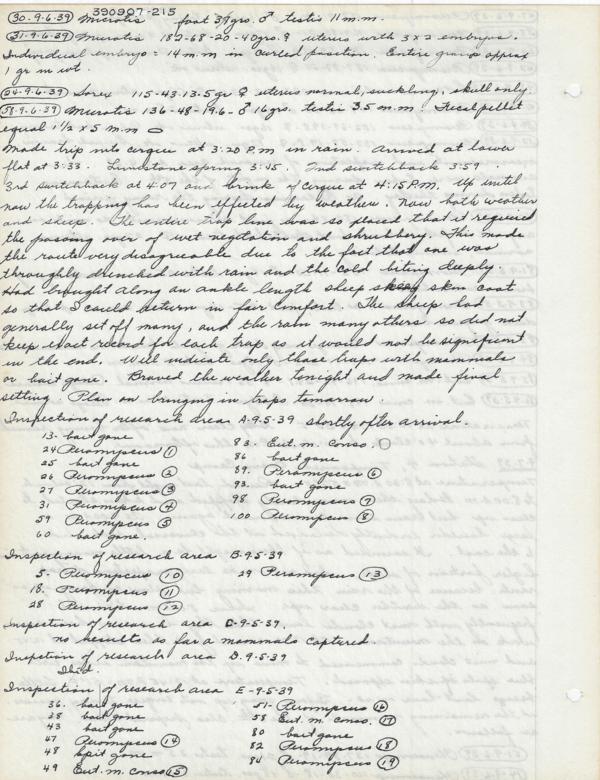 390907-215
30.9.6.39 Microtis foot 37 grs. ♂ testis 11 m.m.
31.9.6.39 Murotis 182-68-20-40 grs. ♀ uterus with 3 x 2 embryos.
Individual embryo = 14 m.m in curled position. Entire group approx
1 gr m wt.
04.9.6.39 Sorex 115-43-13.5 gr ♀ uterus normal, suckling, skull only.
58.9.6.39 Murotis 136-48-19.6- ♂ 16 grs. testis 3.5 m.m. Fecal pellet
equal 1½ x 5 m.m
Made trip into cirque at 3:20 P.m in rain. Arrived at lower
flat at 3:33. Limestone spring 3:45. 2nd switchback 3:59.
3rd switchback at 4:07 and brink of cirque at 4:15 P.m. Up until
now the trapping has been effected by weather. Now both weather
and sheep. The entire trap line was so placed that it required
the passing over of wet vegitation and shrubbery. This made
the route very disagreeable due to the fact that one was
throughly drenched with rain and the cold biting deeply.
Had brought along an ankle length sheep skin coat
so that I could return in fair comfort. The sheep had
generally set off many, and the rain many others so did not
keep exact record for each trap as it would not be significient
in the end. Will indicate only those traps with mammals
or bait gone. Braved the weather tonight and made final
setting. Plan on bringing in traps tomorrow.
Inspection of research area A-9-5-39 shortly after arrival.
13- bait gone
24 Peromyscus 1
25 bait gone
26 Peromyscus 2
27 Peromyscus 3
31 Peromyscus 4
59 Peromyscus 5
60 bait gone.
83. Eut. m. Conso.
86 bait gone
89. Peromyscus 6
93. bait gone
98 Peromyscus 7
100 Peromyscus 8
Inspection of research area B-9-5-39
5- Peromyscus 10
18. Peromyscus 11
28 Peromyscus 12
29 Peromyscus 13
Inspection of research area C-9-5-39.
no results as far a mammals captured.
Inspection of research area D.9-5-39
Ibid.
Inspection of research area E-9-5-39
36. bait gone
38 bait gone
43 bait gone
47 Peromyscus 14
48 bait gone
49 Eut. m. Conso 15
51- Peromyscus 16
58 Eut. m. Conso. 17
80 bait gone
82 Peromyscus 18
84 Peromyscus 19